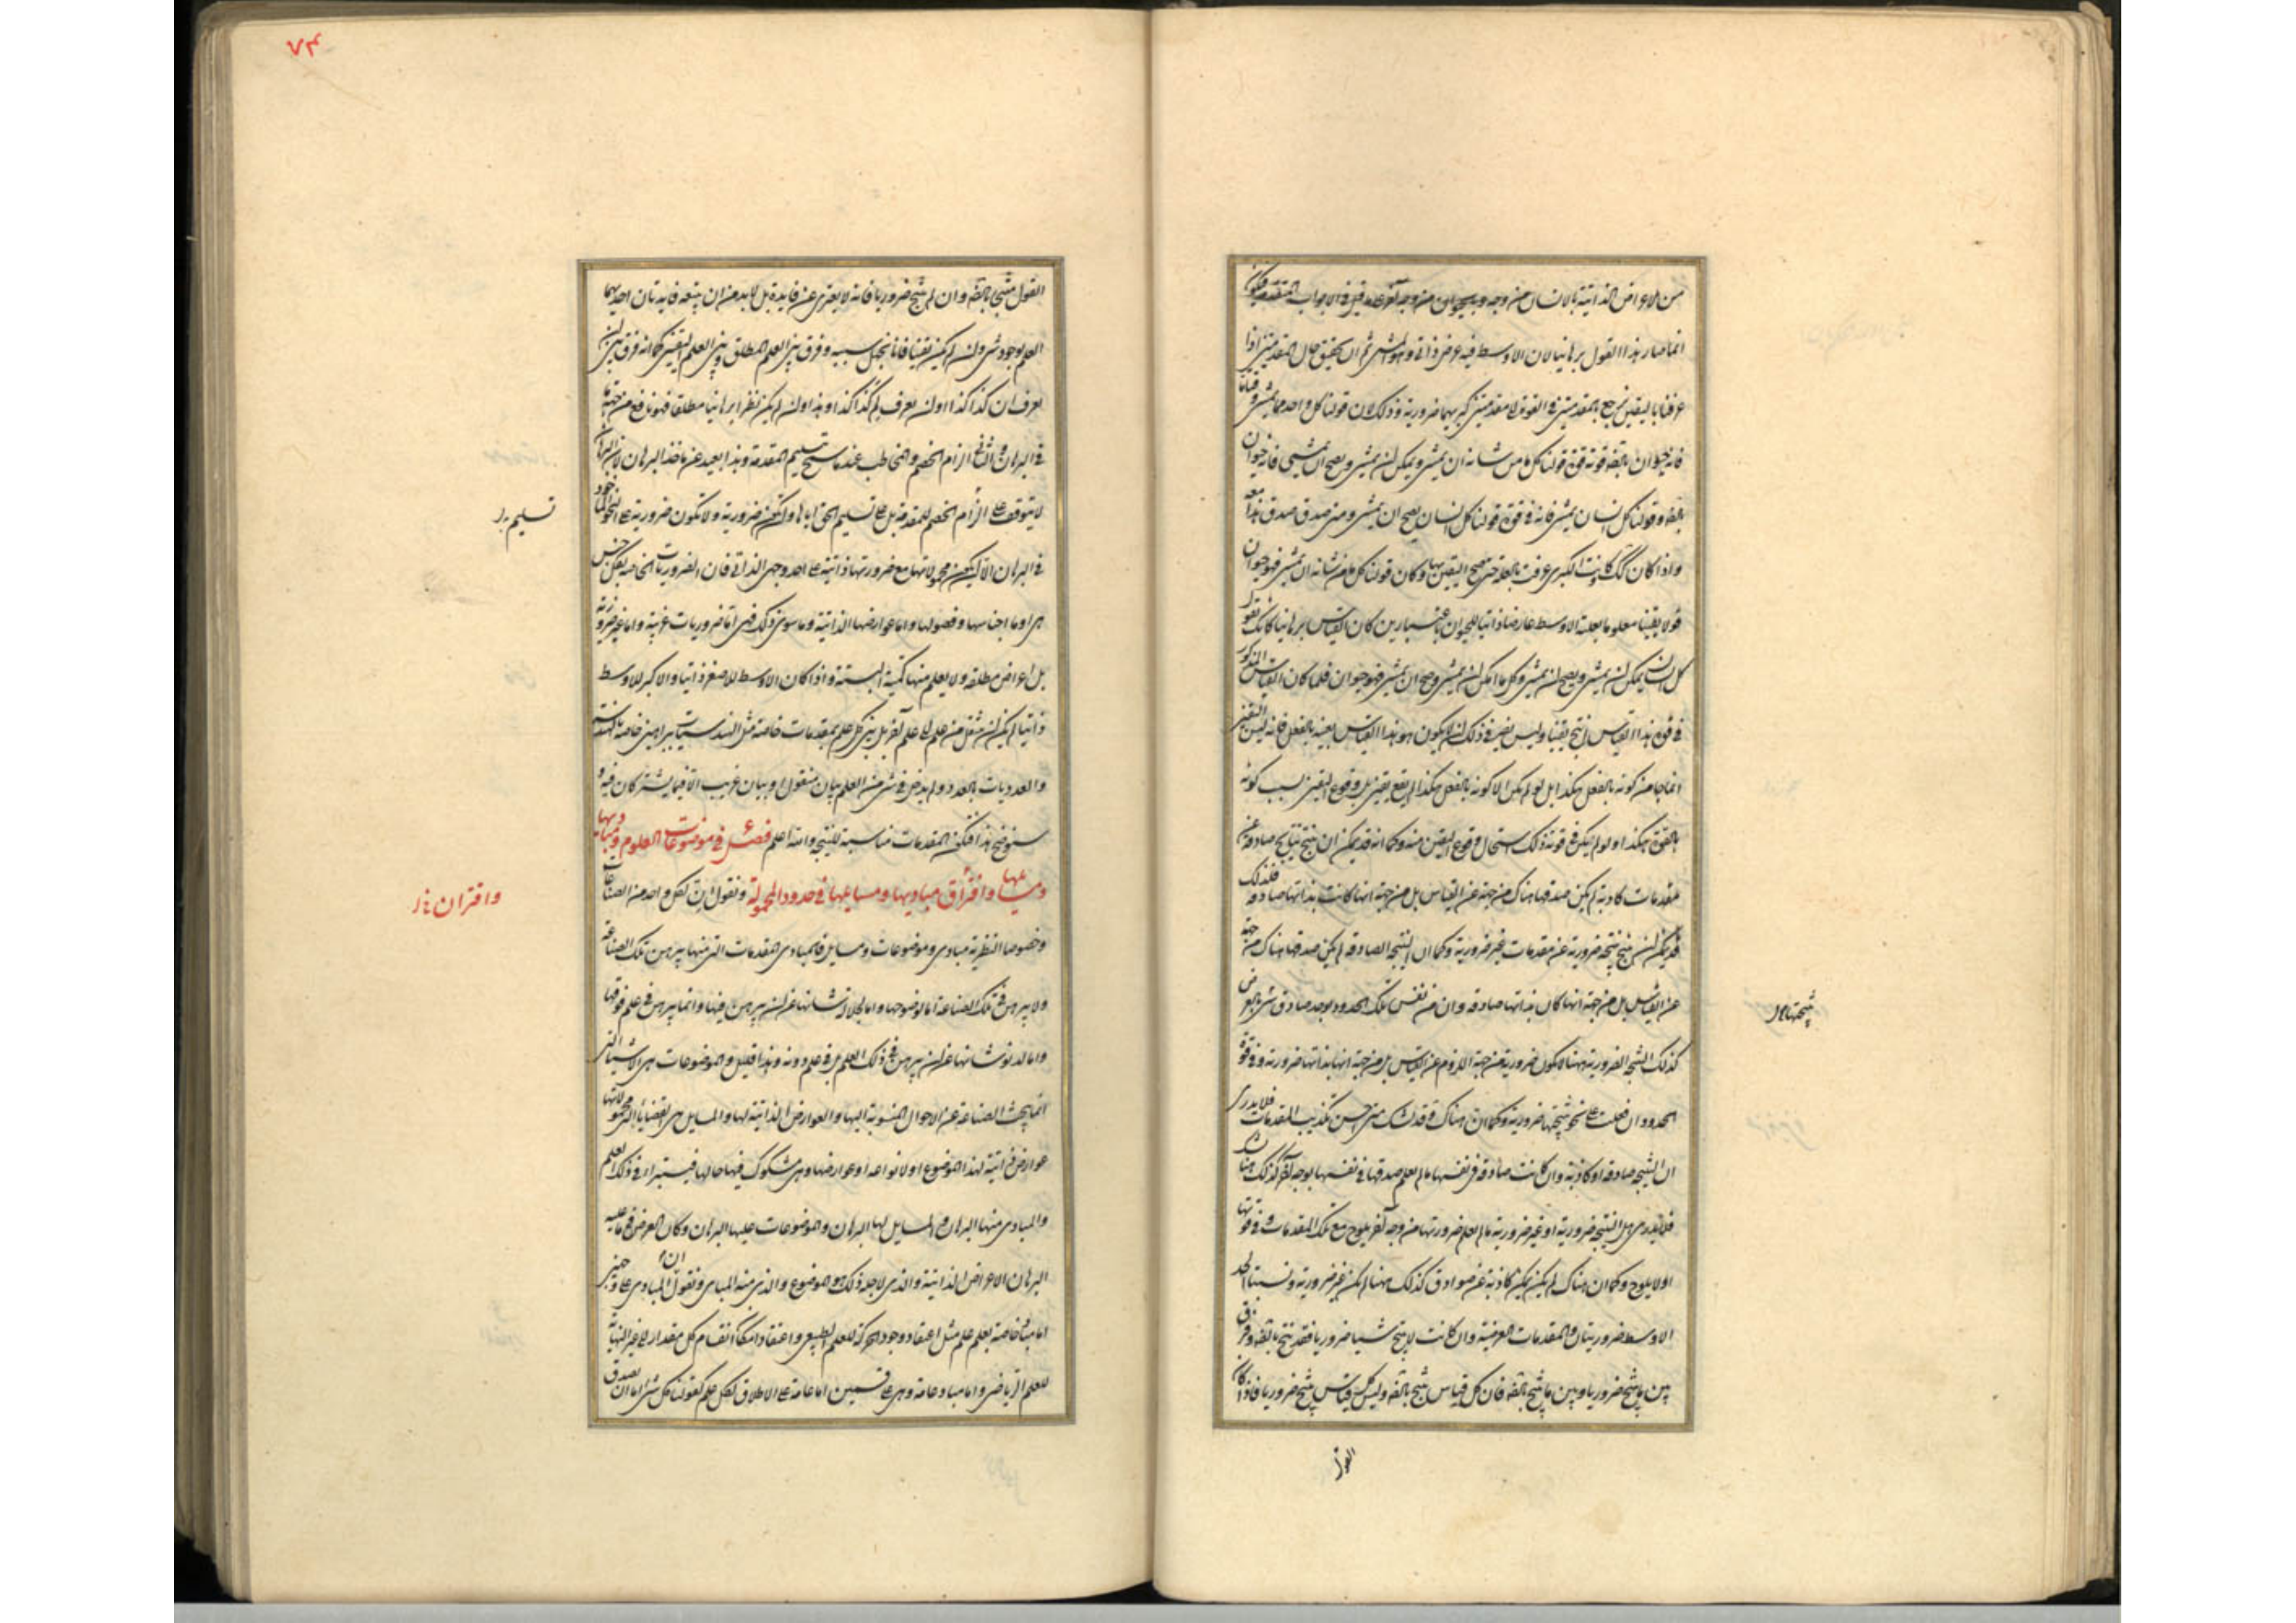 من الاعراض الذاتية بالانسان من وجه وبالحيوان من وجه آخر على ما قيل في الابواب المتقدمة فيكون
انما صار هذا القول برهانيا لان الاوسط فيه عرض ذاتي وهو المشي ثم ان تحقق حال المقدمتين اذا
عرفتا باليقين ترجع المقدمتين في القوة الى مقدمتين كبريهما ضرورية وذلك لان قولنا كل واحد مما يمشي
فانه حيوان بالضرورة قوته قوة قولنا كل ما من شانه ان يمشي ويمكن ان يمشي ويصح ان يمشي فانه حيوان
بالضرورة وقولنا كل انسان يمشي فانه في قوة قولنا كل انسان يصح ان يمشي ومتى صدق صدق هذا معه
واذا كان كذلك وكانت الكبرى عرفت بالعلة حتى صح اليقين بها وكان قولنا كل ما من شانه ان يمشي فهو حيوان
قولا يقينا معلوما بعلته الاوسط عارضا ذاتيا للحيوان باعتبارين كان القياس برهانيا كانك تقول
كل انسان يمكن ان يمشي ويصح ان يمشي وكل ما امكن ان يمشي وصح ان يمشي فهو حيوان فلما كان القياس المذكور
في قوة هذا القياس انتج يقينا وليس يضر في ذلك ان لا يكون هو هذا القياس بعينه بالفعل فانه ليس اليقين
انما جا من كونه بالفعل هكذا بل لو لم يكن الا كونه بالفعل هكذا لم يقع يقين بل وقوع اليقين بسبب كونه
بالقوة هكذا ولو لم يكن في قوته ذلك استحال وقوع اليقين منه وكما انه قد يمكن ان ينتج نتائج صادقة عن
مقدمات كاذبة لم يكن صدقها هناك من جهة عن القياس بل من جهة انها كانت بذاتها صادقة فكذلك
قد يمكن ان ينتج نتيجة ضرورية عن مقدمات غير ضرورية وكما ان النتيجة الصادقة لم يكن صدقها هناك من جهة
عن القياس بل من جهة انها كان بذاتها صادقة وان من نفس تلك الحدود يوجد صادق شي بالعرض
كذلك النتيجة الضرورية ههنا لا تكون ضرورية من جهة اللزوم عن القياس بل من جهة انها بذاتها ضرورية وفي قوة
الحدود ان فعلت على نحو نتيجتها ضرورية وكما ان هناك قد شك متى احسن تكذيب المقدمات فلا يدرى
ان النتيجة صادقة او كاذبة وان كانت صادقة في نفسها ما لم يعلم صدقها في نفسها بوجه آخر كذلك هنا
فلا يدرى هل النتيجة ضرورية او غير ضرورية ما لم يعلم ضرورتها من وجه آخر يلوح مع تلك المقدمات وفي قوتها
او لا يلوح وكما ان هناك لم يكن يمكن كاذبة عن صوادق كذلك ههنا لم يكن غير ضرورية ونسبتا الحد
الاوسط ضروريتان والمقدمات العرضية وان كانت لا ينتج شيا ضروريا فقد ينتج بالضرورة وفرق
بين ما ينتج ضروريا وبين ما ينتج بالضرورة فان كل قياس ينتج بالضرورة وليس كل قياس ينتج ضروريا فاذا كان
نتيجتها
القول
٧٤
القول منتجا بالضرورة وان لم ينتج ضروريا فانه لا يعرى عن فايدة بل لابد من ان يتبعه فايدتان احديهما
العلم بوجود شي وان لم يكن يقينا فانا نجهل سببه وفرق بين العلم المطلق وبين العلم اليقيني كما انه فرق بين ان
يعرف ان كذا كذا وان يعرف لم كذا كذا وهذا وان لم يكن نظرا برهانيا مطلقا فهو نافع من جهة ما
في البرهان والثاني الزام الخصم والمخاطب عندما سبح تسليم المقدمة وهذا بعيد عن ماخذ البرهان لان البرهان
لا يتوقف على الزام الخصم للمقدمة بل على تسليم الحق اياها ولتكن ضرورية ولا تكون ضرورية على النحو الماخوذ
في البرهان الا ان يكون محمولاتها مع ضرورتها ذاتية على احد وجهي الذاتي فان الضروريات الخاصة بكل جنس
هي اوما اجناسها وفصولها واما عوارضها الذاتية وما سوى ذلك فهي اما ضروريات غريبة واما غير ضرورية
بل اعراض مطلقة ولا يعلم منها كمية البتة واذا كان الاوسط للاصغر ذاتيا والاكبر للاوسط
ذاتيا لم يمكن ان ينتقل من علم الى علم آخر بل يبين كل علم بمقدمات خاصة مثل الهندسيات ببراهين خاصة بالهندسة
والعدديات بالعدد ولم يدخل في شي من العلم بيان منقول او بيان غريب الا فيما يشتركان فيه و
سنوضح هذا فتكن المقدمات مناسبة للنتيجة والله اعلم فصل في موضوعات العلوم ومباديها
ومسائلها واقتران مباديها ومسايلها في حدود المحمولة ونقول ان لكل واحد من الصناعات
وخصوصا النظرية مبادى وموضوعات ومسايل فالمبادى المقدمات التي منها يبرهن تلك الصناعة
ولا يبرهن في تلك الصناعة اما لوضوحها واما لجلالة شانها عن ان يبرهن فيها وانما يبرهن في علم فوقها
واما لدنو شانها عن ان يبرهن في ذلك العلم بل في علم دونه وهذا قليل والموضوعات هي الاشياء التي
انما يبحث الصناعة عن الاحوال المنسوبة اليها والعوارض الذاتية لها والمسايل هي القضايا التي محمولاتها
عوارض ذاتية لهذا الموضوع او لانواعه او عوارضها وهي مشكوك فيها حالها فيستبرا في ذلك العلم
والمبادى منها البرهان والمسايل لها البرهان والموضوعات عليها البرهان وكان الغرض في ما عليه
البرهان الاعراض الذاتية والذي لاجله ذلك هو الموضوع والذي منه المبادى ونقول ان المبادى على وجهين
اما مبادى خاصة بعلم علم مثل اعتقاد وجود الحركة للعلم الطبيعي واعتقاد امكان انقسام كل مقدار الى غير النهاية
للعلم الرياضي واما مبادى عامة وهي على قسمين اما عامة على الاطلاق لكل علم كقولنا كل شي اما ان يصدق
تسليم
واقتران